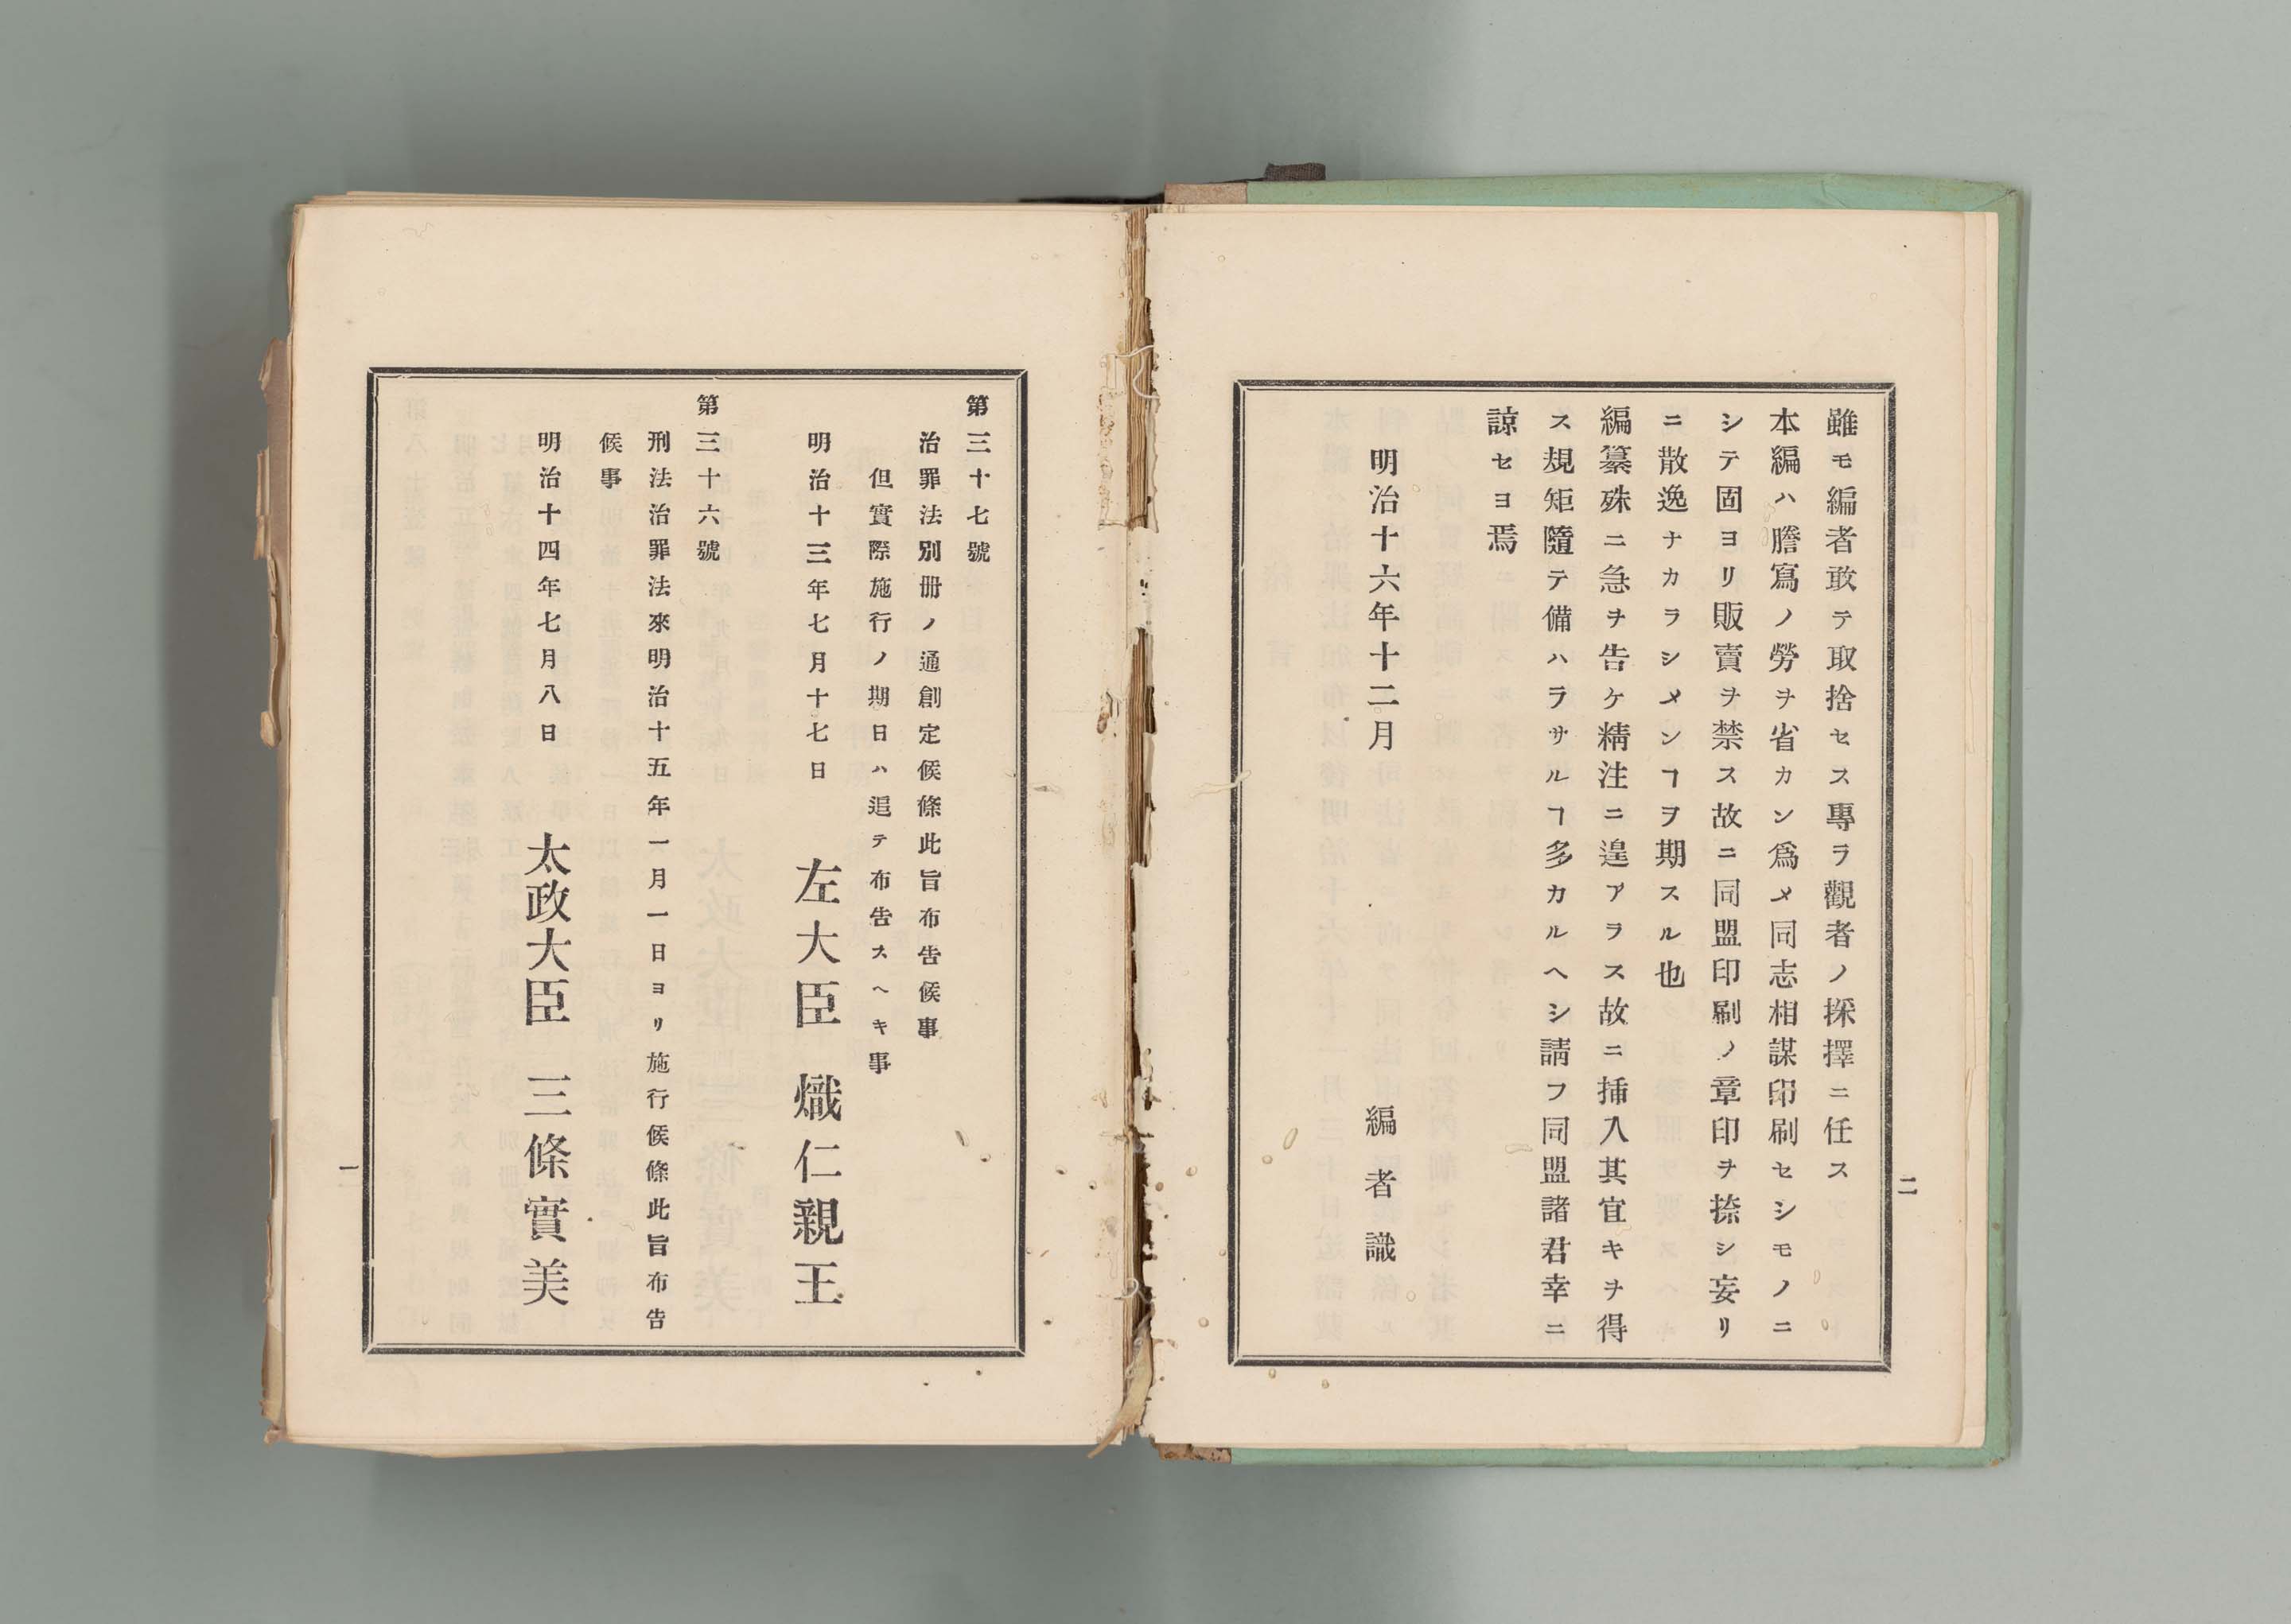 雖モ編者敢テ取捨セス專ラ觀者ノ採擇ニ任ス
本編ハ謄寫ノ勞ヲ省カン爲メ同志相謀印刷セシモノニ
シテ固ヨリ販賣ヲ禁ス故ニ同盟印刷ノ章印ヲ捺シ妄リ
ニ散逸ナカラシメンヿヲ期スル也
編纂殊ニ急ヲ告ケ精注ニ遑アラス故ニ挿入其宜キヲ得
ス規矩隨テ備ハラサルヿ多カルヘシ請フ同盟諸君幸ニ
諒セヨ焉
明治十六年十二月
編者識
二
第三十七號
治罪法別冊ノ通創定候條此旨布告候事
但實際施行ノ期日ハ追テ布告スヘキ事
明治十三年七月十七日
左大臣 熾仁親王
第三十六號
刑法治罪法來明治十五年一月一日ヨリ施行候條此旨布告
候事
明治十四年七月八日
太政大臣 三條實美